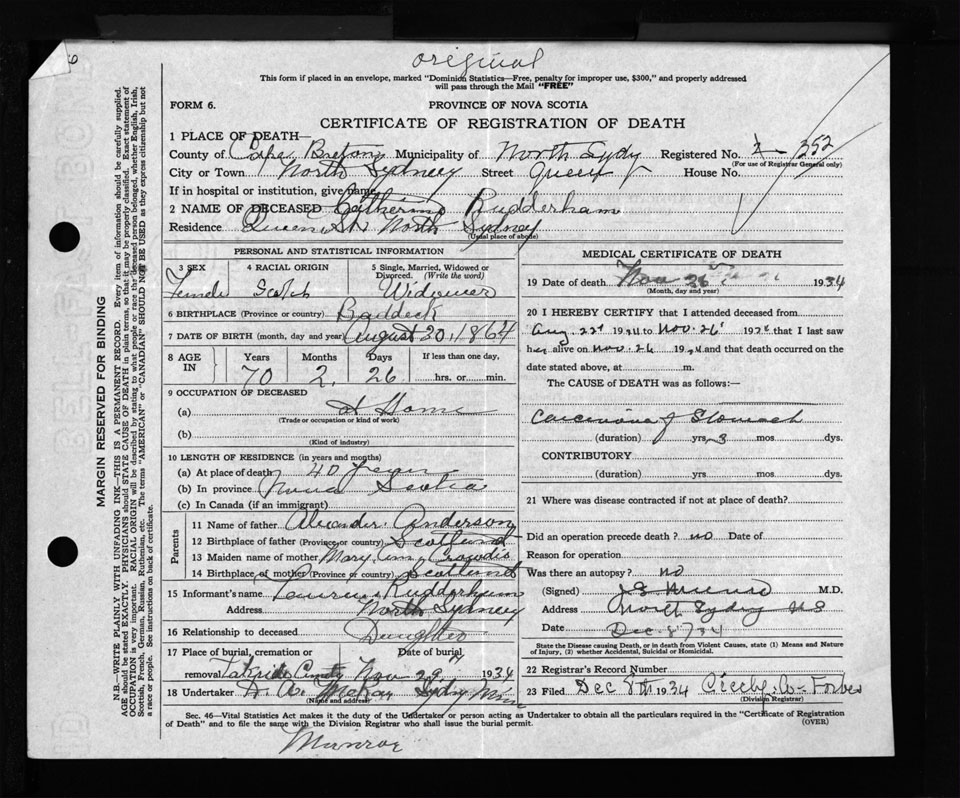 original
This form if placed in an envelope, marked "Dominion Statistics—Free, penalty for improper use, $300," and properly addressed
will pass through the Mail "FREE"
FORM 6.
PROVINCE OF NOVA SCOTIA
CERTIFICATE OF REGISTRATION OF DEATH
1 PLACE OF DEATH—
County of Cape Breton Municipality of North Sydy Registered No. 352
(For use of Registrar General only)
City or Town North Sydney Street Queen House No.
If in hospital or institution, give name
2 NAME OF DECEASED Catherine Rudderham
Residence Queen St. North Sydney
(Usual place of abode)
PERSONAL AND STATISTICAL INFORMATION
3 SEX 4 RACIAL ORIGIN 5 Single, Married, Widowed or Divorced. (Write the word)
Female Scotch Widower
6 BIRTHPLACE (Province or country) Baddeck
7 DATE OF BIRTH (month, day and year) August 30, 1864
8 AGE IN Years Months Days If less than one day,
70 2 26 hrs. or min.
9 OCCUPATION OF DECEASED
(a) at Home
(Trade or occupation or kind of work)
(b)
(Kind of industry)
10 LENGTH OF RESIDENCE (in years and months)
(a) At place of death 40 years
(b) In province Nova Scotia
(c) In Canada (if an immigrant)
Parents
11 Name of father Alexander Anderson
12 Birthplace of father (Province or country) Scotland
13 Maiden name of mother Mary Ann
14 Birthplace of mother (Province or country) Scotland
15 Informant's name Rudderham
Address North Sydney
16 Relationship to deceased Daughter
17 Place of burial, cremation or removal Date of burial,
Lakeside Nov 29 1934
18 Undertaker McKay Sydny
(Name and address)
MEDICAL CERTIFICATE OF DEATH
19 Date of death Nov 26 1934
(Month, day and year)
20 I HEREBY CERTIFY that I attended deceased from
Aug. 1934 to Nov. 26 that I last saw
her alive on Nov. 26 and that death occurred on the
date stated above, at m.
The CAUSE of DEATH was as follows:—
Carcinoma of Stomach
(duration) yrs. 3 mos. dys.
CONTRIBUTORY
(duration) yrs. mos. dys.
21 Where was disease contracted if not at place of death?
Did an operation precede death? no Date of
Reason for operation
Was there an autopsy? no
(Signed) M.D.
Address North Sydny N S
Date Dec 8/34
State the Disease causing Death, or in death from Violent Causes, state (1) Means and Nature
of Injury, (2) whether Accidental, Suicidal or Homicidal.
22 Registrar's Record Number
23 Filed Dec 8th 1934 Forbes
(Division Registrar)
Sec. 46—Vital Statistics Act makes it the duty of the Undertaker or person acting as Undertaker to obtain all the particulars required in the "Certificate of Registration
of Death" and to file the same with the Division Registrar who shall issue the burial permit. (OVER)
Munroe
MARGIN RESERVED FOR BINDING
N.B.—WRITE PLAINLY WITH UNFADING INK—THIS IS A PERMANENT RECORD. Every item of information should be carefully supplied.
AGE should be stated EXACTLY. PHYSICIANS should STATE CAUSE OF DEATH in plain terms, so that it may be properly classified. Exact statement of
OCCUPATION is very important. RACIAL ORIGIN will be described by stating to what people or race the deceased person belonged, whether English, Irish,
Scottish, French, German, Russian, Ruthenian, etc. The terms "AMERICAN" or "CANADIAN" SHOULD NOT BE USED as they express citizenship but not
a race or people. See instructions on back of certificate.